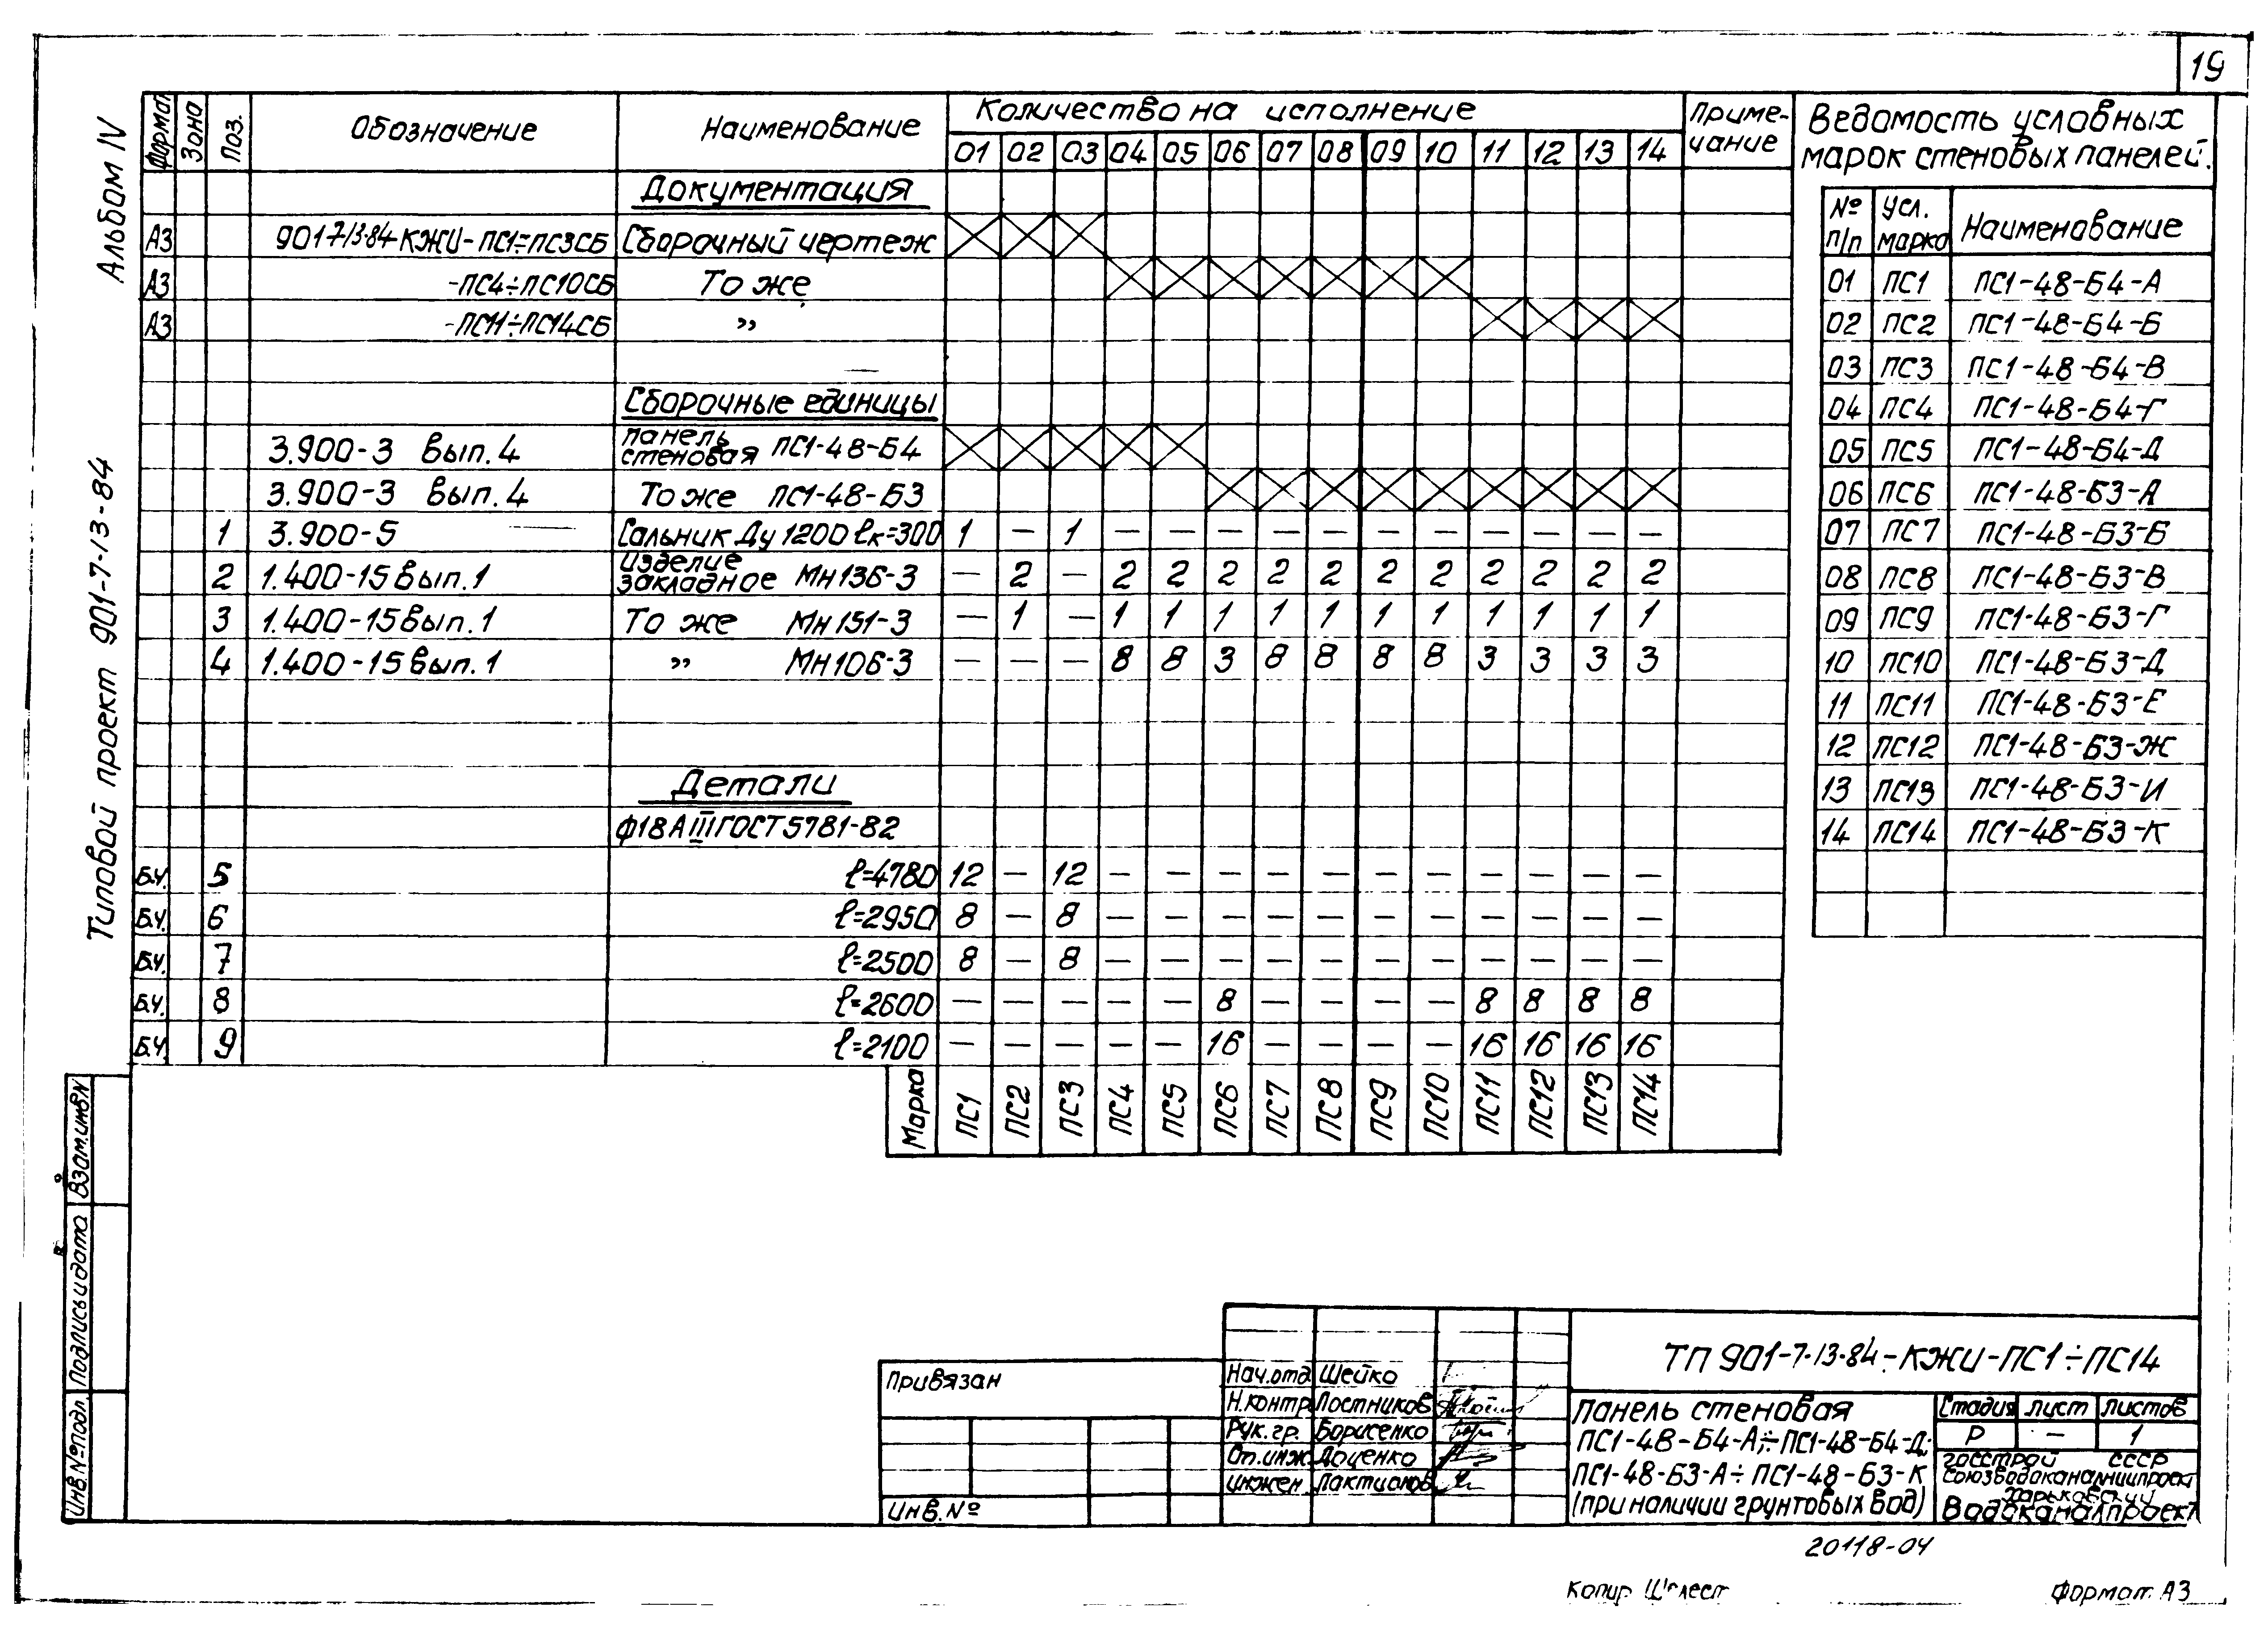 19
Альбом IV
Типовой проект 901-7-13-84
Формат Зона Поз. Обозначение Наименование Количество на исполнение Приме-чание
01 02 03 04 05 06 07 08 09 10 11 12 13 14
Документация
А3 901-7-13-84 КЖИ-ПС1÷ПС3СБ Сборочный чертеж
А3 -ПС4÷ПС10СБ То же
А3 -ПС11÷ПС14СБ "
Сборочные единицы
3.900-3 Вып. 4 панель стеновая ПС1-48-Б4
3.900-3 Вып. 4 То же ПС1-48-Б3
1 3.900-5 Сальник Ду 1200 ℓк=300 1 — 1 — — — — — — — — — — —
2 1.400-15 Вып. 1 Изделие закладное Мн136-3 — 2 — 2 2 2 2 2 2 2 2 2 2 2
3 1.400-15 Вып. 1 То же Мн151-3 — 1 — 1 1 1 1 1 1 1 1 1 1 1
4 1.400-15 Вып. 1 " Мн106-3 — — — 8 8 3 8 8 8 8 3 3 3 3
Детали
Ф18 АIII ГОСТ 5781-82
Б.Ч. 5 ℓ=4780 12 — 12 — — — — — — — — — — —
Б.Ч. 6 ℓ=2950 8 — 8 — — — — — — — — — — —
Б.Ч. 7 ℓ=2500 8 — 8 — — — — — — — — — — —
Б.Ч. 8 ℓ=2600 — — — — — 8 — — — — 8 8 8 8
Б.Ч. 9 ℓ=2100 — — — — — 16 — — — — 16 16 16 16
Марка ПС1 ПС2 ПС3 ПС4 ПС5 ПС6 ПС7 ПС8 ПС9 ПС10 ПС11 ПС12 ПС13 ПС14
Ведомость условных
марок стеновых панелей.
№ п/п Усл. марка Наименование
01 ПС1 ПС1-48-Б4-А
02 ПС2 ПС1-48-Б4-Б
03 ПС3 ПС1-48-Б4-В
04 ПС4 ПС1-48-Б4-Г
05 ПС5 ПС1-48-Б4-Д
06 ПС6 ПС1-48-Б3-А
07 ПС7 ПС1-48-Б3-Б
08 ПС8 ПС1-48-Б3-В
09 ПС9 ПС1-48-Б3-Г
10 ПС10 ПС1-48-Б3-Д
11 ПС11 ПС1-48-Б3-Е
12 ПС12 ПС1-48-Б3-Ж
13 ПС13 ПС1-48-Б3-И
14 ПС14 ПС1-48-Б3-К
Взам.инв.N
Подпись и дата
Инв.№подл.
Привязан
Инв.№
Нач.отд Шейко
Н.контр. Постников
Рук.гр. Борисенко
Ст.инж Доценко
инжен. Лактионов
ТП 901-7-13-84-КЖИ-ПС1÷ПС14
Панель стеновая
ПС1-48-Б4-А÷ПС1-48-Б4-Д;
ПС1-48-Б3-А÷ПС1-48-Б3-К
(при наличии грунтовых вод)
Стадия лист листов
Р — 1
госстрой СССР
Союзводоканалниипроект
Харьковский
Водоканалпроект
20118-04
Копир. Шелест
Формат А3